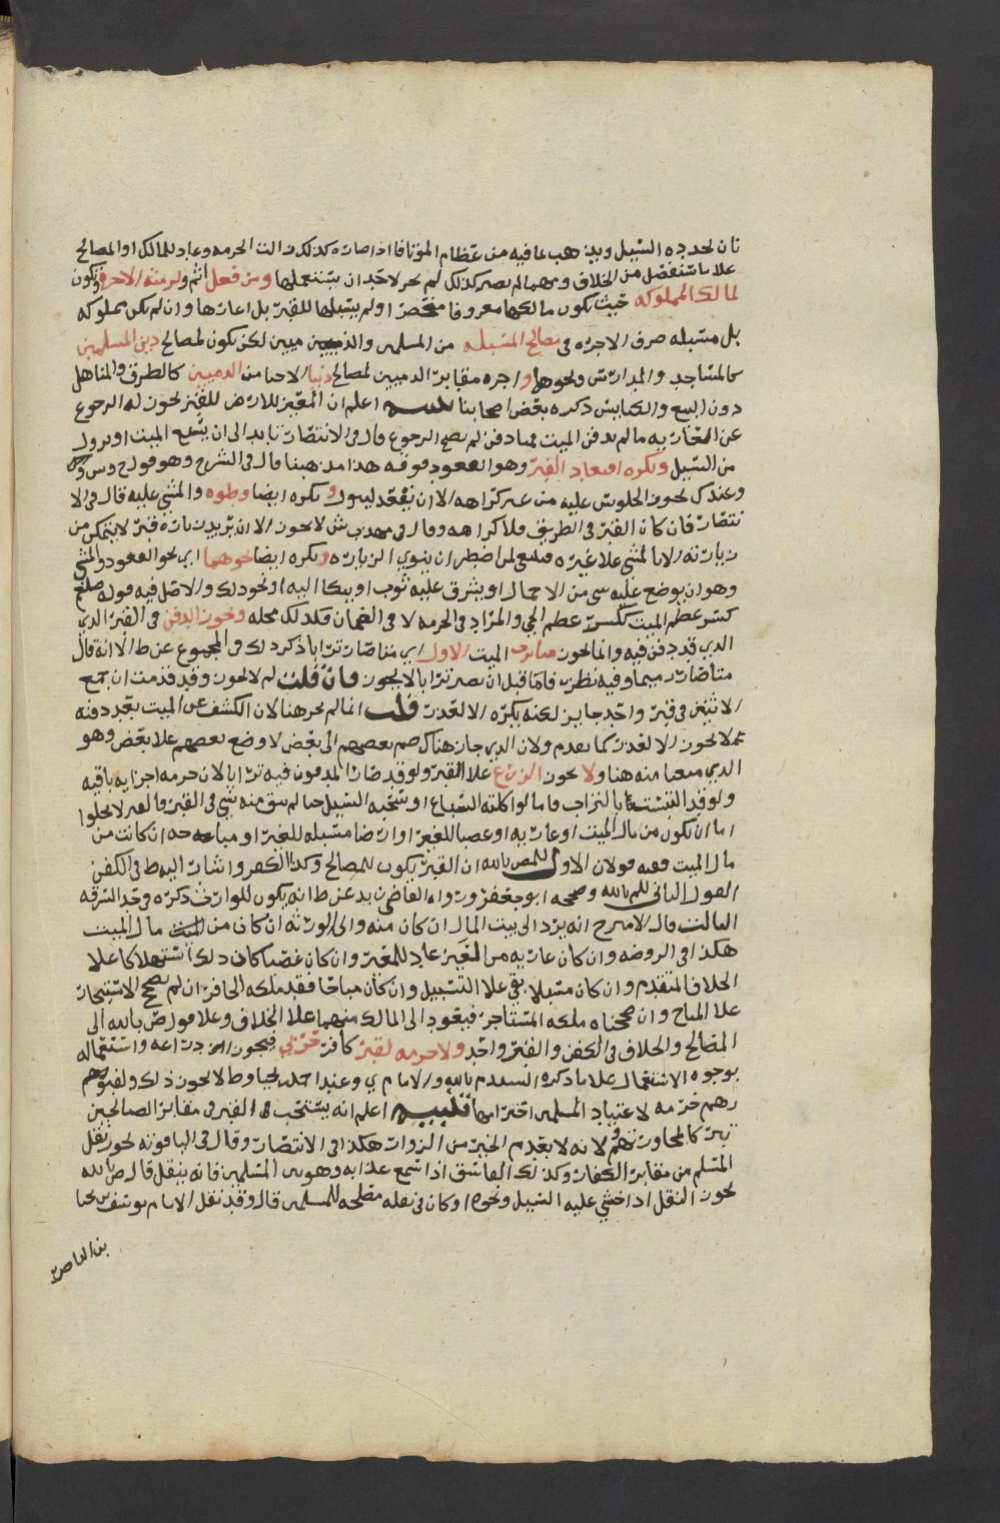 بان لحدده السيل ويذهب بما فيه من عظام الموتا فاذا صارت كذلك زالت الحرمه وعاد للمالك او المصالح
علا ما سنفصل من الخلاف ومهما لم يصر كذلك لم يحز لاحد ان يستعملها ومن فعل أثم ولزمته الاجره وتكون
لمالك المملوكه حيث يكون مالكها معروفا منحصرا ولم يسبلها للقبر بل اعارها وان لم يكن مملوكه
بل مسبله صرف الاجره في مصالح المسبله من المسلمين والذميين لكن يكون لمصالح دين المسلمين
كالمساجد والمدارس ونحوها واجره مقابر الذميين لمصالح دنيا الاحيا من الذميين كالطرق والمناهل
دون البيع والكنايس ذكره بعض اصحابنا تنبيه اعلم ان المعير للارض للقبر يحوز له الرجوع
عن العاريه ما لم يدفن الميت فمهما دفن لم يصح الرجوع قال في الانتصار تابد الى ان يبلى الميت او يزول
من السيل ويكره اقتعاد القبر وهو القعود فوقه هذا مذهبنا قال في الشرح وهو قول ح وش
وعند ك يحوز الجلوس عليه من غير كراهه الا ان يقعد ليبول ويكره ايضا وطوه والمشي عليه قال في الا
نتصار فان كان القبر في الطريق فلا كراهه وقال في مهذب ش لا يحوز الا ان يريد زيارة قبر لا يتمكن من
زيارته الا بالمشي علا غيره فينبغي لمن اضطر ان ينوي الزياره ويكره ايضا نحوهما اي نحو القعود والمشي
وهو ان يوضع عليه شي من الاحمال او يشرق عليه ثوب او يتكا اليه او نحو ذلك والاصل فيه قوله صلعم
كسر عظم الميت ككسر عظم الحي والمراد في الحرمه لا في الضمان فكذلك محله ويحوز الدفن في القبر الذي
الذي قد دفن فيه وانما يحوز متى ترب الميت الاول اي متى صار ترابا ذكر ذلك في المجموع عن ط الا انه قال
متى صار رميما وفيه نظر فاما قبل ان يصير ترابا لا يحوز فان قلت لم لا يحوز وقد قدمت ان جمع
الاثنين في قبر واحد جايز لكنه يكره الا لعذر قلت انما لم يحز هنا لان الكشف عن الميت بعد دفنه
لا يحوز الا لعذر كما تقدم ولان الذي جاز هناك ضم بعضهم الى بعض لا وضع بعضهم علا بعض وهو
الذي منعنا منه هنا ولا يحوز الزرع علا القبر ولو قد صار المدفون فيه ترابا لان حرمه اجزايه باقيه
ولو قد التبست بالتراب فاما لو اكلته السباع او سحبه السيل حتى لم يبق منه شي في القبر فالقبر لا يخلوا
اما ان يكون من مال الميت او عاريه او غصبا للغير او ارضا مسبله للغير او مباحه ان كانت من
مال الميت ففيه قولان الاول للمص بالله ان القبر يكون للمصالح وكذا الكفن واشار اليه ط في الكفن
القول الثاني للم بالله وصححه ابو جعفر ورواه القاضي زيد عن ط انه يكون للوارث ذكره
الثالث قال الامير ح انه يرد الى بيت المال ان كان منه والى الورثه ان كان من مال الميت
هكذا في الروضه وان كان عاريه من الغير عاد للمعير وان كان غصبا كان ذلك استهلاكا علا
الخلاف المتقدم وان كان مسبلا بقي علا التسبيل وان كان مباحا فقد ملكه الحافر ان لم يصح الاستيجار
علا المباح وان صححناه ملكه المستاجر فيعود الى المالك منهما علا الخلاف وعلا قول ص بالله الى
المصالح والخلاف في الكفن والقبر واحد ولا حرمه لقبر كافر حربي فيحوز ازدراعه واستعماله
بوجوه الاستعمال علا ما ذكره السيد م بالله والامام ي وعند احد يحيا وط لا يحوز ذلك ولقبورهم
حرمه لاعتياد المسلمين احترامها تنبيه اعلم انه يستحب القبر في مقابر الصالحين
تبركا بمجاورتهم ولانه لا يعدم الخير من الزوار هكذا في الانتصار وقال في الياقوته يحوز نقل
المسلم من مقابر الكفار وكذلك الفاسق اذا سمع عذابه وهو بين المسلمين فانه ينقل قال ص بالله
يحوز النقل اذا خشي عليه السيل ونحوه او كان في نقله مصلحه للمسلمين قال وقد نقل الامام يوسف بن يحيا
بن الناصر